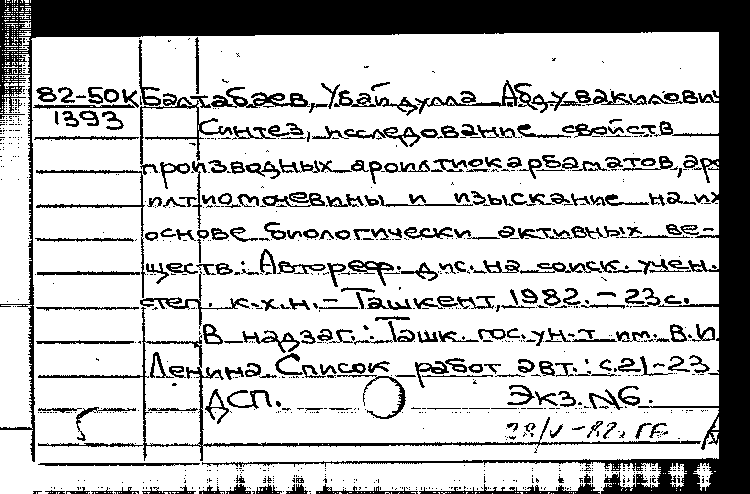 82-50К Балтабаев, Убайдулла Абдувакилович
1393 Синтез, исследование свойств
производных ароилтиокарбаматов, аро
илтиомочевины и изыскание на их
основе биологически активных ве-
ществ.: Автореф. дис. на соиск. учен.
степ. к.х.н. - Ташкент, 1982. - 23с.
В надзаг.: Ташк. гос. ун-т им. В.И.
Ленина. Список работ авт.: с.21-23
ДСП. Экз. N6.
5 28/V-82г.